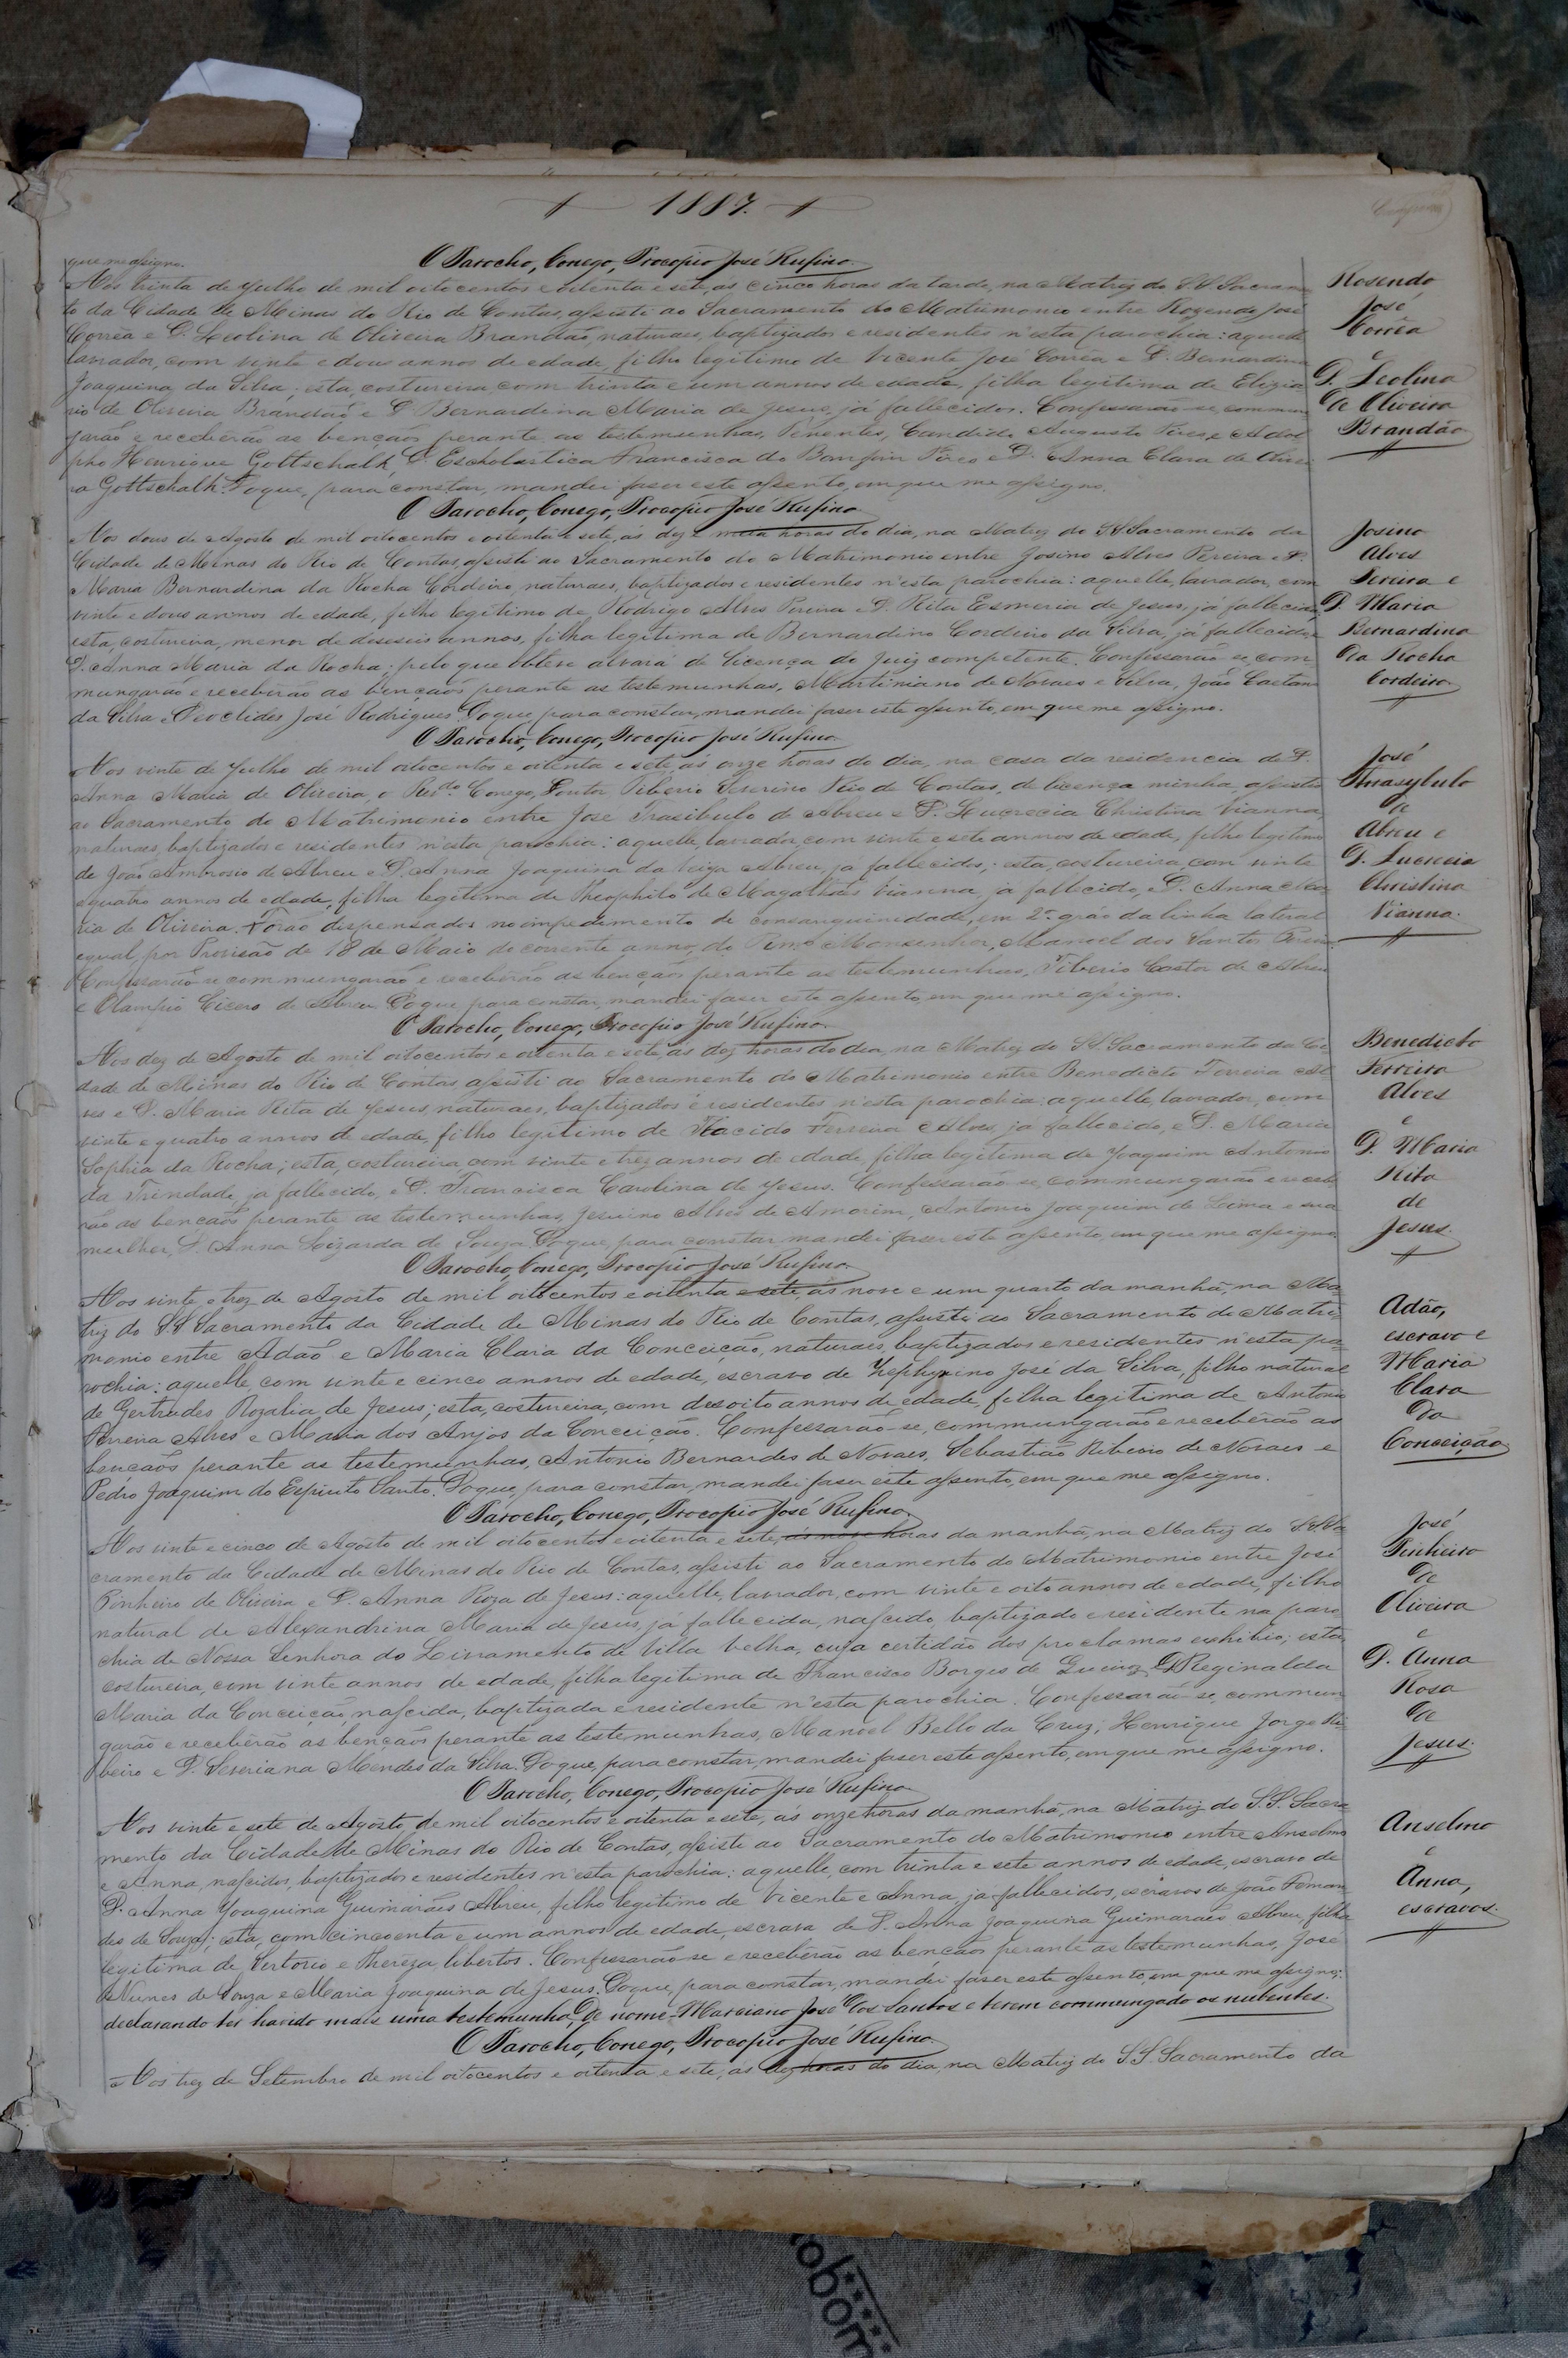 1887.
que me assigno.
O Parocho, Conego, Procopio José Rufino
Aos trinta de Julho de mil oitocentos e oitenta e sete, as cinco horas da tarde, na Matriz do S.S. Sacramen
to da Cidade de Minas do Rio de Contas, assisti ao Sacramento do Matrimonio entre Rozendo José
Corrêa e D. Leolina de Oliveira Brandão, naturaes, baptizados e residentes n'esta parochia: aquelle
lavrador, com vinte e dous annos de edade, filho legitimo de Vicente José Corrêa e D. Bernardina
Joaquina da Silva; esta, costureira, com trinta e um annos de edade, filha legitima de Elizia
rio de Oliveira Brandão e D. Bernardina Maria de Jesus, já fallecidos. Confessarão-se, commun
garão e receberão as bençãos perante as testemunhas, Tenentes, Candido Augusto Pires, e Adol
pho Henrique Gottschalk, D. Escholastica Francisca do Bomfim Pires e D. Anna Clara de Olivei
ra Gottschalk. Do que, para constar, mandei faser este assento, em que me assigno.
Rosendo
José
Corrêa
e
D. Leolina
de Oliveira
Brandão
O Parocho, Conego, Procopio José Rufino
Aos dous de Agosto de mil oitocentos e oitenta e sete, ás dez e meia horas do dia, na Matriz do S.S. Sacramento da
Cidade de Minas do Rio de Contas, assisti ao Sacramento do Matrimonio entre Josino Alves Pereira e D.
Maria Bernardina da Rocha Cordeiro, naturaes, baptizados e residentes n'esta parochia: aquelle, lavrador, com
vinte e dous annos de edade, filho legitimo de Rodrigo Alves Pereira e D. Rita Esmeria de Jesus, já fallecida;
esta, costureira, menor de deseseis annos, filha legitima de Bernardino Cordeiro da Silva, já fallecido e
D. Anna Maria da Rocha; pelo que obteve alvará de licença do Juiz competente. Confessarão-se, com-
mungarão e receberão as bençãos perante as testemunhas, Martiniano de Novaes e Silva, João Caetano
da Silva e Deoclides José Rodrigues. Do que, para constar, mandei faser este assento, em que me assigno.
Josino
Alves
Pereira e
D. Maria
Bernardina
da Rocha
Cordeiro
O Parocho, Conego, Procopio José Rufino
Aos vinte de Julho de mil oitocentos e oitenta e sete, ás onze horas do dia, na casa da residencia de D.
Anna Maria de Oliveira, o Revdo. Conego, Doutor Tiberio Severino Rio de Contas, de licença minha, assistio
ao Sacramento do Matrimonio entre José Trasibulo de Abreu e D. Lucrecia Christina Vianna,
naturaes, baptizados e residentes n'esta parochia: aquelle, lavrador, com vinte e sete annos de edade, filho legitimo
de João Ambrosio de Abreu e D. Anna Joaquina da Veiga Abreu, já fallecidos; esta, costureira, com vinte
e quatro annos de edade, filha legitima de Theophilo de Magalhães Vianna, já fallecido, e D. Anna Ma
ria de Oliveira. Forão dispensados no impedimento de consanguinidade, em 2º grão da linha lateral
egual, por Provisão de 18 de Maio do corrente anno, do Rmo. Monsenhor, Manoel dos Santos Pereira.
Confessarão-se, commungarão e receberão as bençãos perante as testemunhas, Tiberio Castor de Abreu
e Olampio Cicero de Abreu. Do que, para constar, mandei faser este assento, em que me assigno.
José
Thrasybulo
de
Abreu e
D. Lucrecia
Christina
Vianna.
O Parocho, Conego, Procopio José Rufino
Aos dez de Agosto de mil oitocentos e oitenta e sete, ás dez horas do dia, na Matriz do S.S. Sacramento da Ci
dade de Minas do Rio de Contas, assisti ao Sacramento do Matrimonio entre Benedicto Ferreira Al
ves e D. Maria Rita de Jesus, naturaes, baptizados e residentes n'esta parochia: aquelle, lavrador, com
vinte e quatro annos de edade, filho legitimo de Placido Ferreira Alves, já fallecido, e D. Maria
Sophia da Rocha; esta, costureira, com vinte e tres annos de edade, filha legitima de Joaquim Antonio
da Trindade, já fallecido, e D. Francisca Carolina de Jesus. Confessarão-se, commungarão e recebe
rão as bençãos perante as testemunhas, Jesuino Alves de Amorim, Antonio Joaquim de Lima e sua
mulher, D. Anna Lizarda de Souza. Do que, para constar, mandei faser este assento, em que me assigno.
Benedicto
Ferreira
Alves
e
D. Maria
Rita
de
Jesus.
O Parocho, Conego, Procopio José Rufino
Aos vinte e trez de Agosto de mil oitocentos e oitenta e sete, ás nove e um quarto da manhã, na Ma
triz do S.S. Sacramento da Cidade de Minas do Rio de Contas, assisti ao Sacramento do Matri-
monio entre Adão e Maria Clara da Conceição, naturaes, baptizados e residentes n'esta pa-
rochia: aquelle, com vinte e cinco annos de edade, escravo de Zephyrino José da Silva, filho natural
de Gertrudes Rozalia de Jesus; esta, costureira, com desoito annos de edade, filha legitima de Antonio
Pereira Alves e Maria dos Anjos da Conceição. Confessarão-se, commungarão e receberão as
bençãos perante as testemunhas, Antonio Bernardes de Novaes, Sebastião Ribeiro de Novaes e
Pedro Joaquim do Espirito Santo. Do que, para constar, mandei faser este assento, em que me assigno.
Adão,
escravo e
Maria
Clara
da
Conceição
O Parocho, Conego, Procopio José Rufino
Aos vinte e cinco de Agosto de mil oitocentos e oitenta e sete, ás nove horas da manhã, na Matriz do S.S. Sa
cramento da Cidade de Minas do Rio de Contas, assisti ao Sacramento do Matrimonio entre José
Pinheiro de Oliveira e D. Anna Roza de Jesus: aquelle, lavrador, com vinte e oito annos de edade, filho
natural de Alexandrina Maria de Jesus, já fallecida, nascido, baptizado e residente na paro
chia de Nossa Senhora do Livramento de Villa Velha, cuja certidão dos proclamas exhibio; esta,
costureira, com vinte annos de edade, filha legitima de Francisco Borges de Queiroz e D. Reginalda
Maria da Conceição, nascida, baptizada e residente n'esta parochia. Confessarão-se, commun
garão e receberão as bençãos perante as testemunhas, Manoel Bello da Cruz, Henrique Jorge Ri-
beiro e D. Severiana Mendes da Silva. Do que, para constar, mandei faser este assento, em que me assigno.
José
Pinheiro
de
Oliveira
e
D. Anna
Rosa
de
Jesus.
O Parocho, Conego, Procopio José Rufino
Aos vinte e sete de Agosto, de mil oitocentos e oitenta e sete, ás onze horas da manhã, na Matriz do S.S. Sacra
mento da Cidade de Minas do Rio de Contas, assisti ao Sacramento do Matrimonio entre Anselmo
e Anna, nascidos, baptizados e residentes n'esta parochia: aquelle, com trinta e sete annos de edade, escravo de
D. Anna Joaquina Guimarães Abreu, filho legitimo de Vicente e Anna, já fallecidos, escravos de João Fernan
des de Souza; esta, com cincoenta e um annos de edade, escrava de D. Anna Joaquina Guimarães Abreu, filha
legitima de Sertorio e Thereza, libertos. Confessarão-se e receberão as bençãos perante as testemunhas, José
Nunes de Souza e Maria Joaquina de Jesus. Do que, para constar, mandei faser este assento, em que me assigno:
declarando ter havido mais uma testemunha, de nome Marciano José dos Santos e terem commungado os nubentes.
Anselmo
e
Anna,
escravos.
O Parocho, Conego, Procopio José Rufino
Aos trez de Setembro de mil oitocentos e oitenta e sete, as dez horas do dia, na Matriz do S.S. Sacramento da